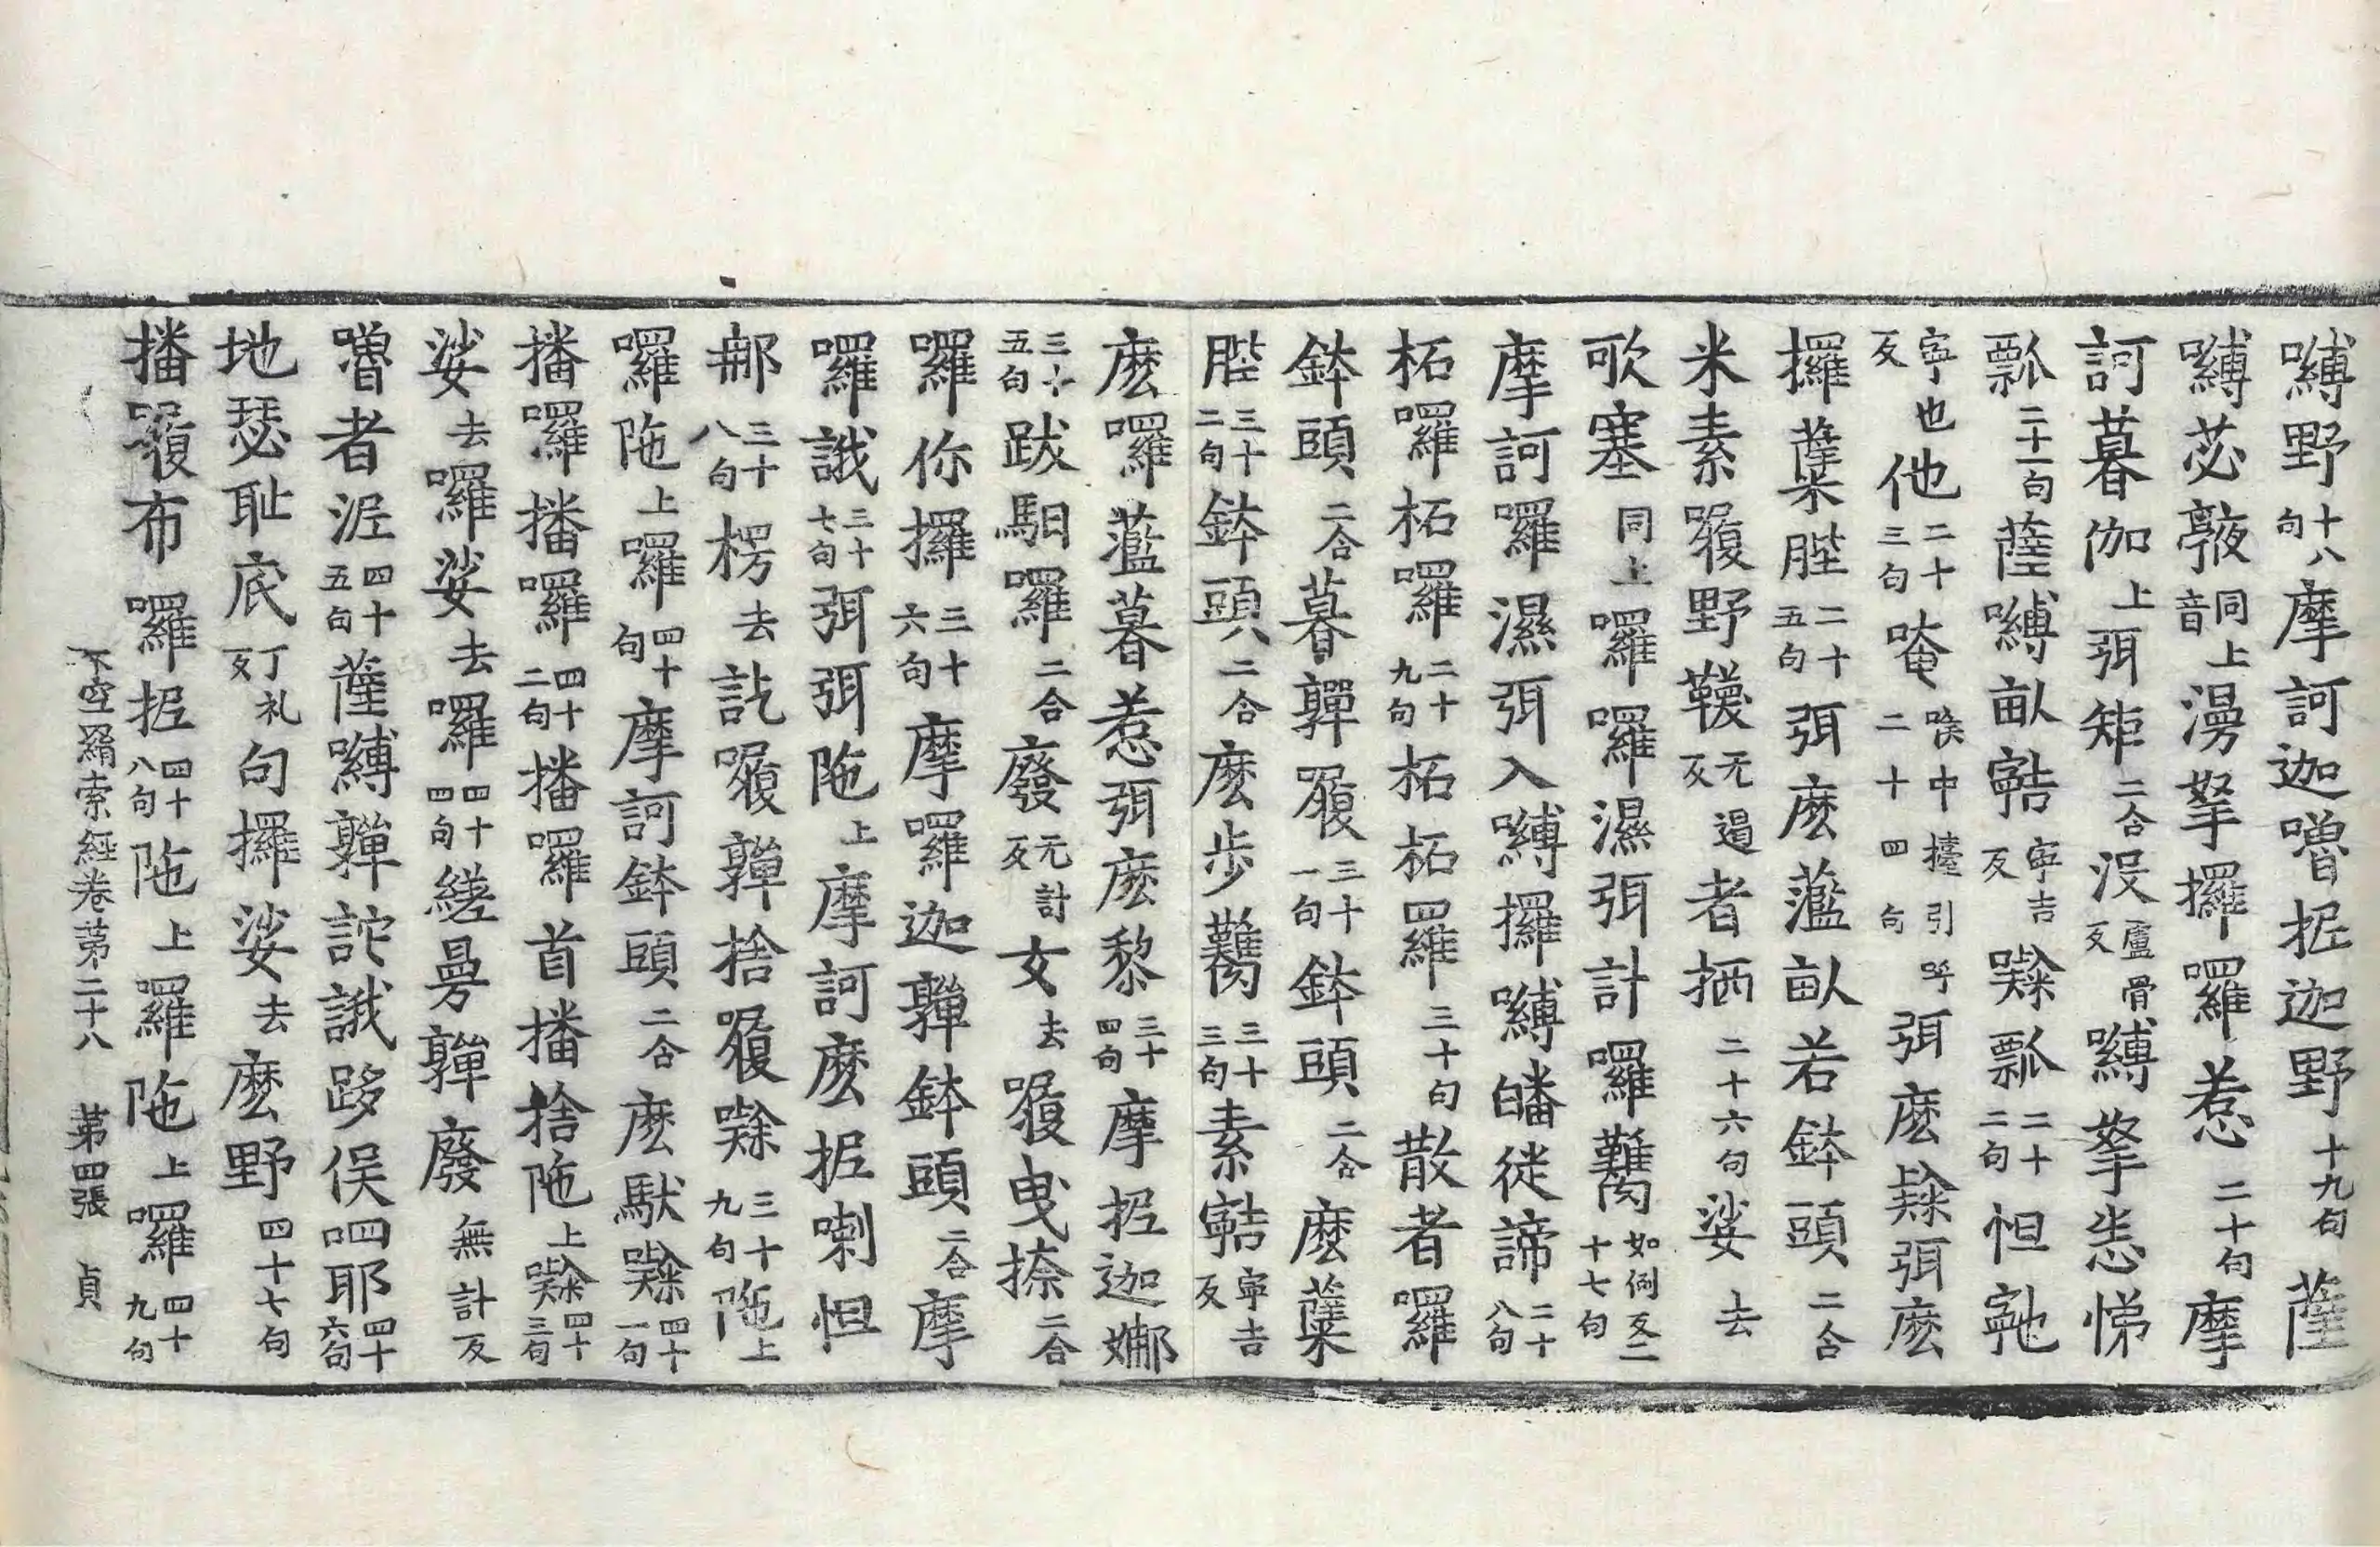 嚩野十八句摩訶迦嚕抳迦野十九句薩
嚩苾㪉同上音漫拏攞囉惹二十句摩
訶暮伽上弭矩二合沒盧骨反嚩拏恙悌
瓢二十一句薩嚩畝寧吉反瓢二十二句怛
寧也反他二十三句唵喉中擡引呼二十四句弭麽弭麽
攞蘗陛二十五句弭麽藍畝若鉢頭二合
米素履野韈无遏反者栖二十六句娑去
歌塞同上囉囉濕弭計囉如例反二十七句
摩訶囉濕弭入嚩攞嚩皤徒諦二十八句
柘囉柘囉二十九句柘柘囉三十句散者囉
鉢頭二合暮嚲履三十一句鉢頭二合麽蘗
陛三十二句鉢頭二合麽步三十三句素寧吉反
麽囉藍暮惹弭麽黎三十四句摩抳迦娜
三十五句跋馹囉二合廢无計反女去履曳捺二合
囉你攞三十六句摩囉迦嚲鉢頭二合摩
囉誐三十七句弭弭陁上摩訶麽抳喇怛
那三十八句楞去訖履嚲捨履三十九句陁上
囉陁上囉四十句摩訶鉢頭二合麽馱四十一句
播囉播囉四十二句播囉首播捨陁上四十三句
娑去囉娑去囉四十四句縒曼嚲廢無計反
嚕者泥四十五句薩嚩嚲詑誐跢俁呬耶四十六句
地瑟耻底丁礼反句攞娑去麽野四十七句
播履布囉抳四十八句陁上囉陁上囉四十九句
不空羂索經卷第二十八 第四張 貞